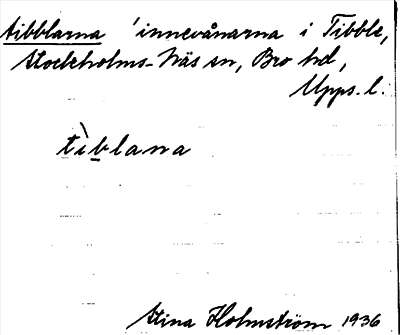 tibblarna 'innevånarna i Tibble,
Stockholms-Näs sn, Bro hd,
Upps. l.
tìblana
Stina Holmström 1936